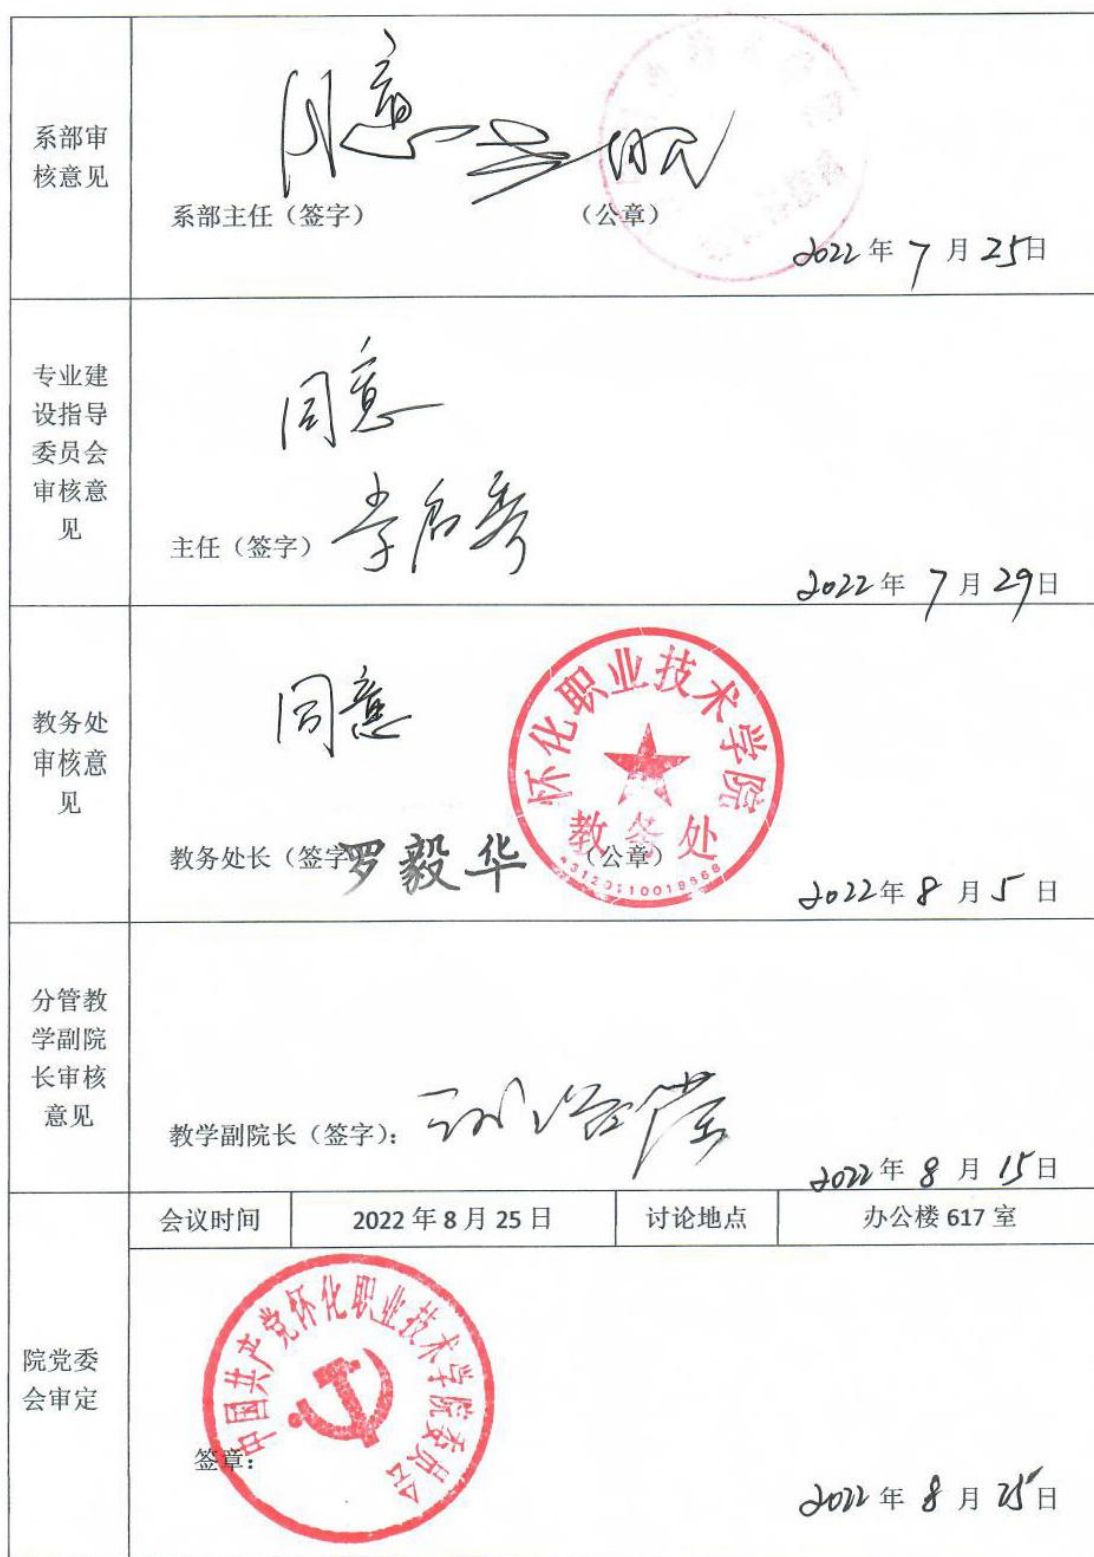 系部审
核意见
同意
系部主任（签字）
（公章）
2022年7月25日
专业建
设指导
委员会
审核意
见
同意
主任（签字）
2022年7月29日
教务处
审核意
见
同意
怀化职业技术学院
教务处
教务处长（签字 罗毅华
（公章）
2022年8月5日
分管教
学副院
长审核
意见
教学副院长（签字）：
2022年8月15日
会议时间
2022年8月25日
讨论地点
办公楼617室
院党委
会审定
中国共产党怀化职业技术学院委员会
签章：
2022年8月25日